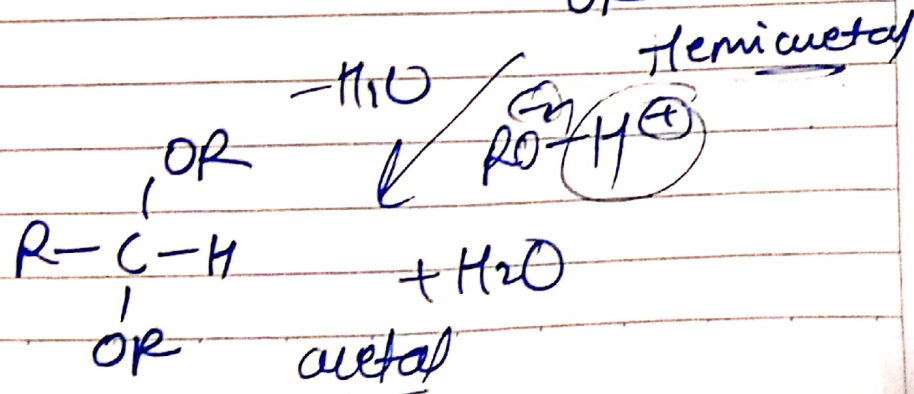 Hemiacetal
-H2O
RO-H⊕
OR
R-C-H
+ H2O
OR
acetal